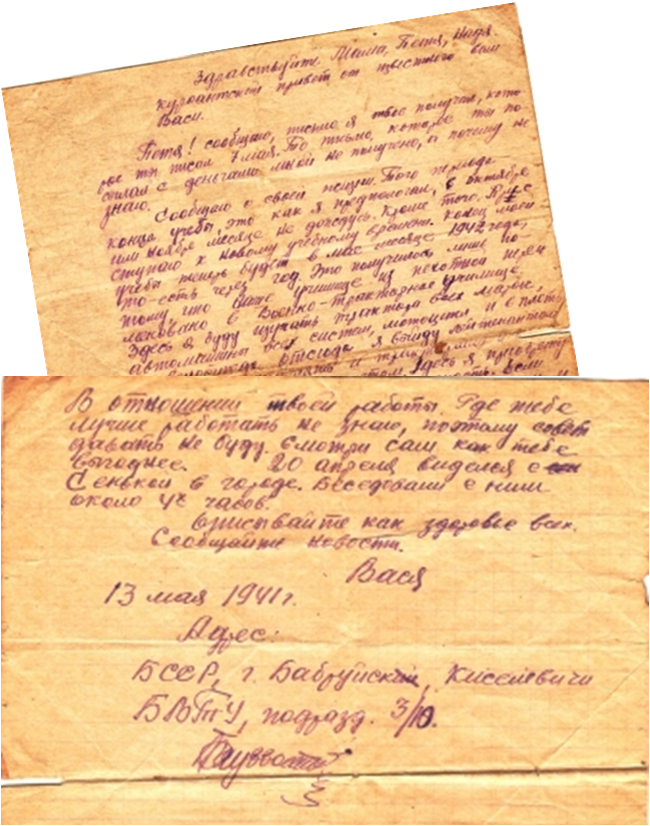 Здравствуйте Мама, Петя, Надя.
курсантский привет от известного вам
Васи.
Петя! сообщаю, письмо я твое получил, кото
рое ты писал 7 мая. То письмо, которое ты по
слал с деньгами мной не получено, а почему не
знаю.
Сообщаю о своей жизни. Того периода
конца учебы, это как я предполагал, в октябре
или ноябре месяце не дождусь. Кроме того,
ступаю к новому учебному времени. Конец моей
учебы теперь будет в мае месяце 1942 года,
то-есть через год. Это получилось лишь по
тому, что наше училище из пехотной переи
меновано в Военно-тракторное училище.
Здесь я буду изучать трактора всех марок,
автомашины всех систем, мотоцикл и
отсюда я выйду лейтенантом
Здесь я
В отношении твоей работы. Где тебе
лучше работать не знаю, поэтому совет
давать не буду. Смотри сам как тебе
выгоднее. 20 апреля виделся с
Сенькой в городе. Беседовали с ним
около 4х часов.
Описывайте как здоровье всех.
Сообщайте новости.
Вася
13 мая 1941 г.
Адрес:
БССР, г. Бабруйск, Киселевичи
БВТУ, подразд. 3/10.